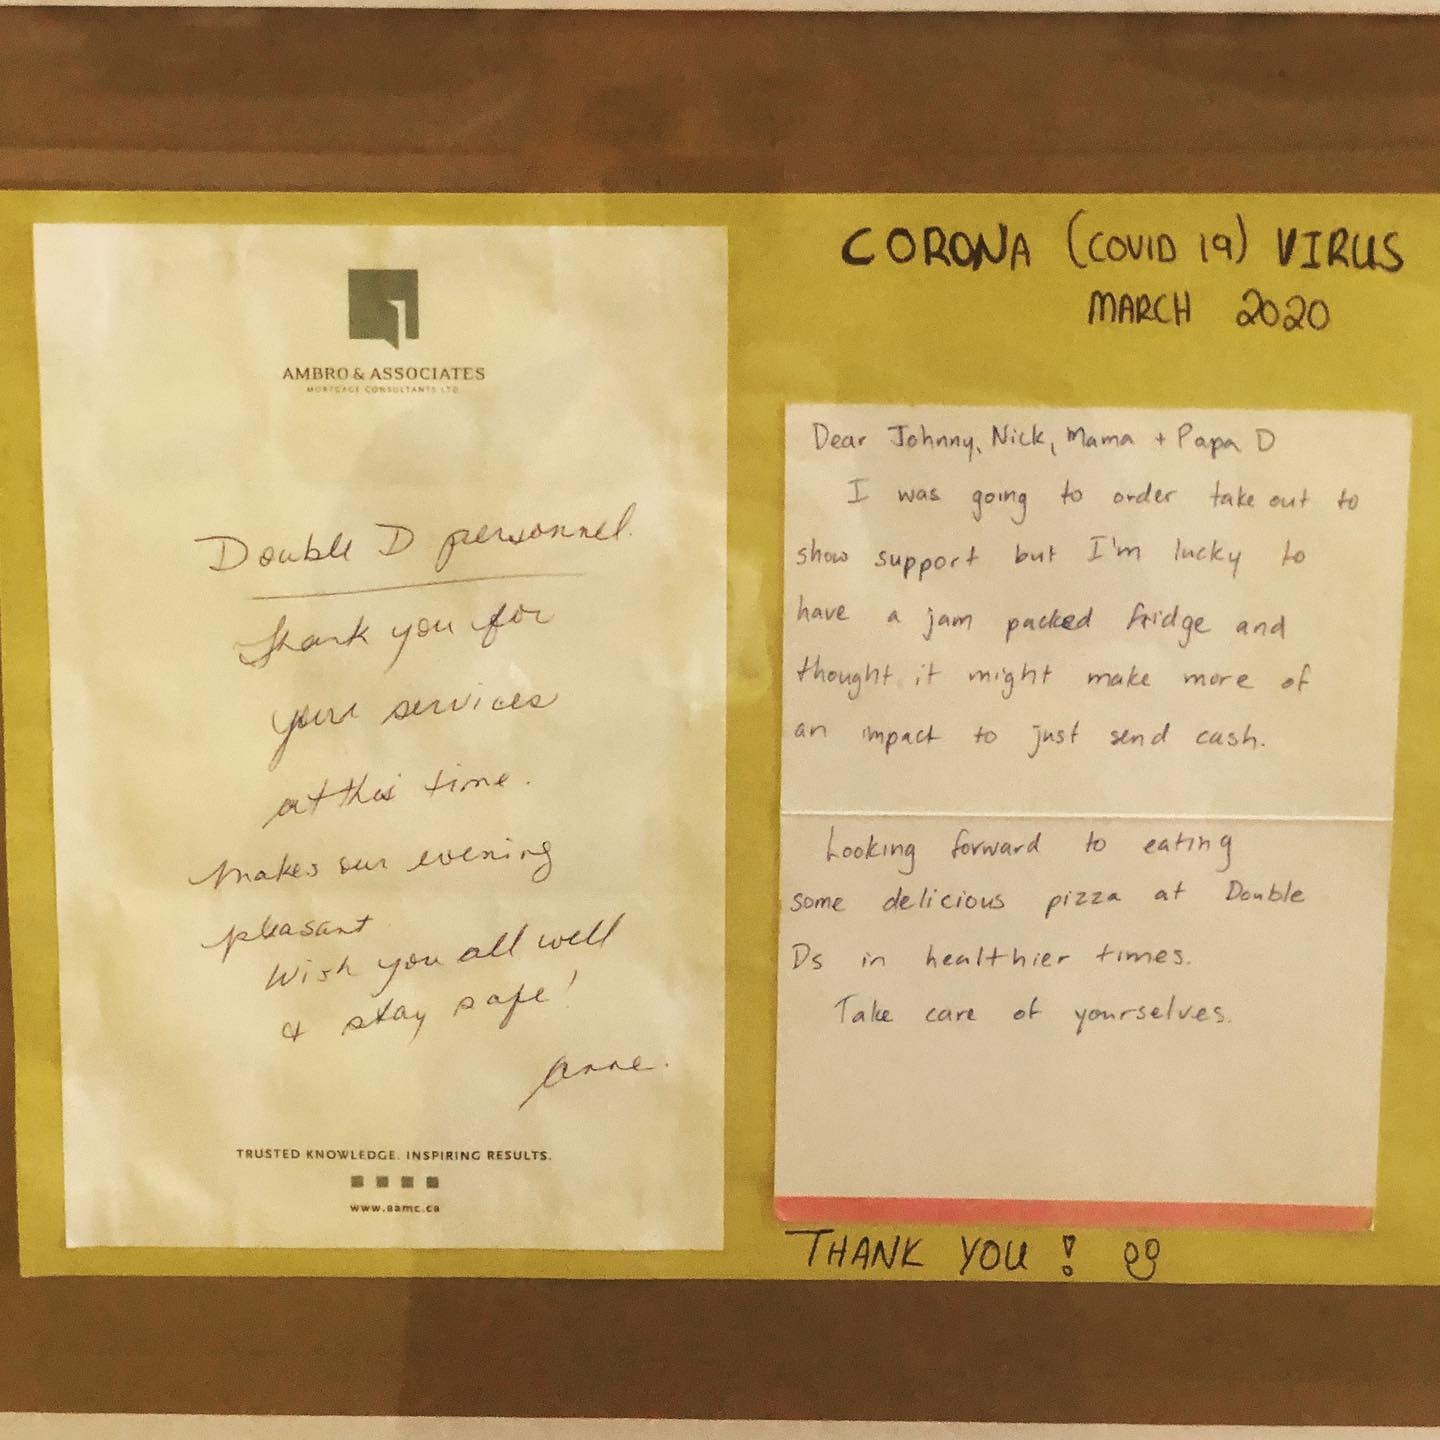 AMBRO & ASSOCIATES
MORTGAGE CONSULTANTS LTD.
Double D personnel.
Thank you for
your services
at this time.
Makes our evening
pleasant
Wish you all well
& stay safe!
Anne.
TRUSTED KNOWLEDGE. INSPIRING RESULTS.
www.aamc.ca
CORONA (COVID 19) VIRUS
MARCH 2020
Dear Johnny, Nick, Mama + Papa D
I was going to order take out to
show support but I'm lucky to
have a jam packed fridge and
thought it might make more of
an impact to just send cash.
Looking forward to eating
some delicious pizza at Double
Ds in healthier times.
Take care of yourselves.
THANK YOU!